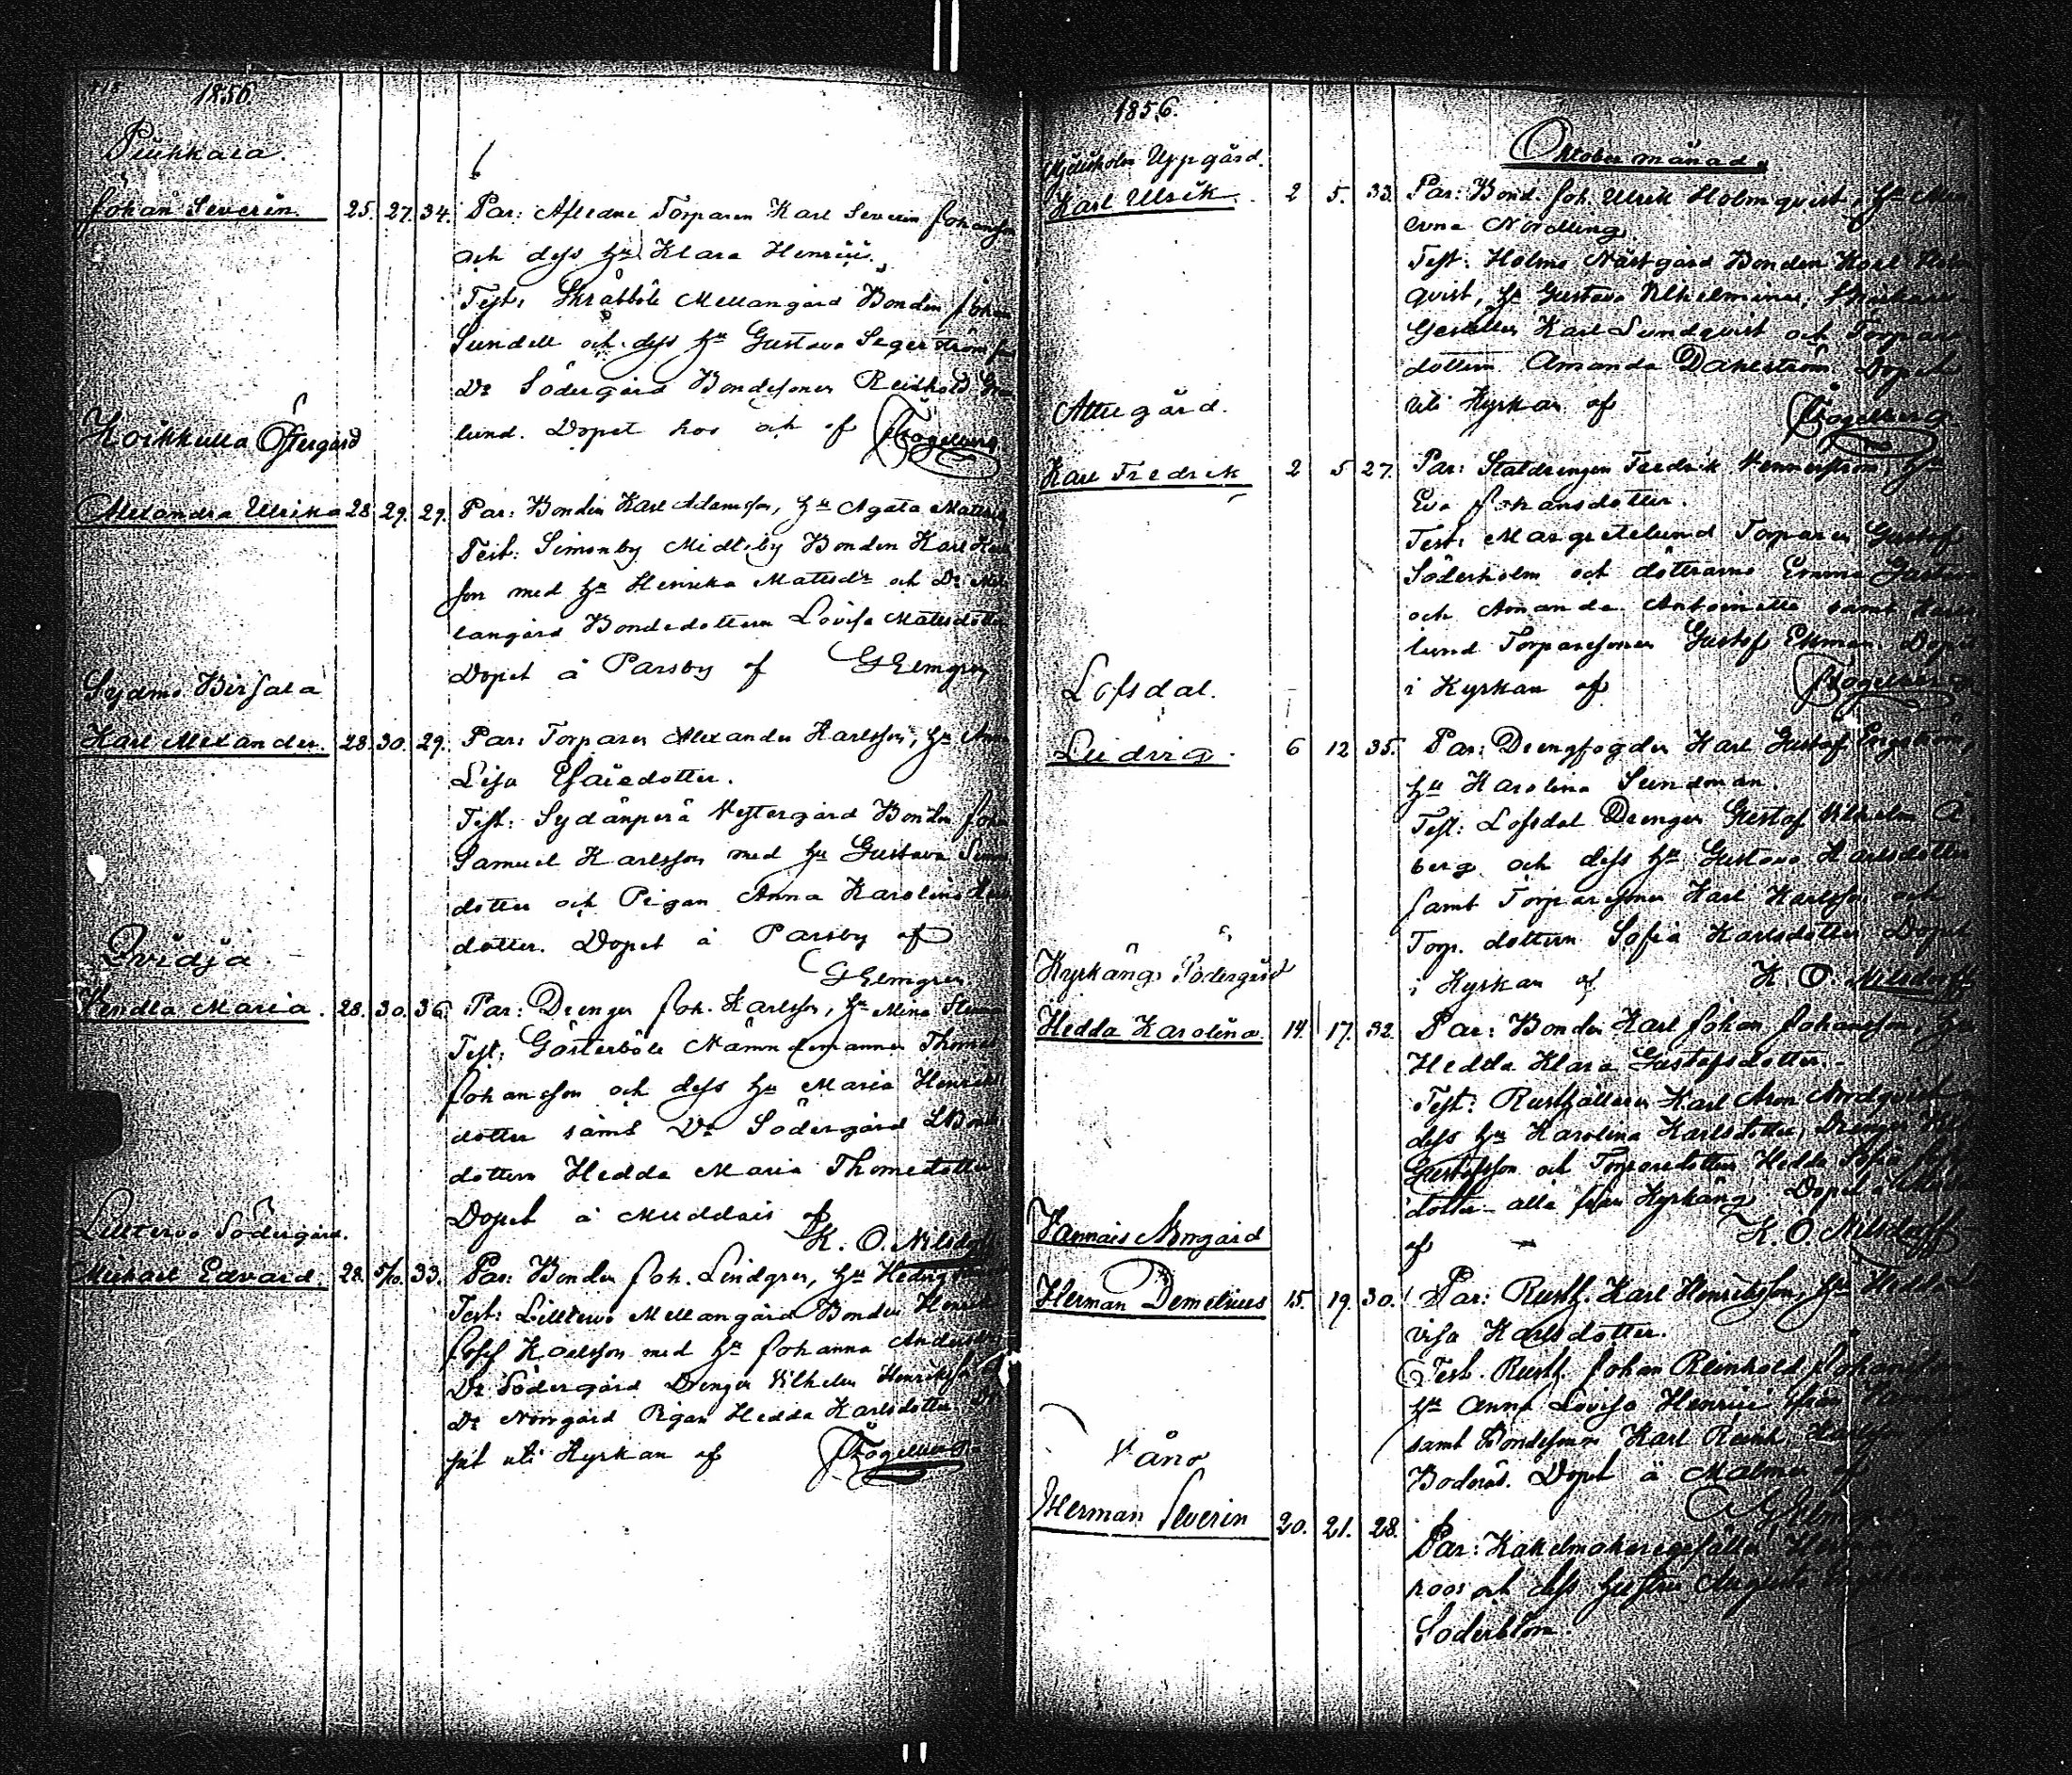 1856
Piukkala.
Johan Severin. 25. 27. 34. Par: Aflidne Torparen Karl Severin Johansson
och dess hu Klara Henrici.
Test: Skråbböle Mellangård Bonden Johan
Sundell och dess hu Gustava Segerström
Do Södergård Bondesonen Reinhold
lund. Dopet hos och af FFogelberg
Koikkulla Östergård
Alexandra Ulrika 28. 29. 29. Par: Bonden Karl Adamsson, hu Agata
Test: Simonby Midleby Bonden Karl
son med hu Henrika Matsdr och Do Mel
langård Bondedottern Lovisa Matsdotter
Dopet å Parsby af GElmgren
Sydmo Birsala
Karl Alexander. 28. 30. 29. Par: Torparen Alexander Karlsson, hu Anna
Lisa Esaiedotter.
Test: Sydänperä Westergård Bonden Johan
Samuel Karlsson med hu Gustava
dotter och Pigan Anna Karolina
dotter. Dopet å Parsby af
GElmgren
Qvidja
Vendla Maria. 28. 30. 36. Par: Drengen Joh. Karlsson, hu Mina
Test: Gösterböle Nämndemannen Thomas
Johansson och dess hu Maria Henriks
dotter samt Do Södergård Bonde
dottern Hedda Maria Thomedotter
Dopet å Muddais af
K. O. Nilsdorff
Lilltervo Södergård.
Michael Edvard. 28. 5/10. 33. Par: Bonden Joh. Lindgren, hu Hedvig
Test: Lilltervo Mellangård Bonden Henrik
Josef Karlsson med hu Johanna Andersdr
Do Södergård Drengen Vilhelm Henriksson
Do Norrgård Pigan Hedda Karlsdotter. Do
pet uti Kyrkan af FFogelberg
1856.
Oktober månad.
Uppgård.
Karl Ulrik. 2 5. 33. Par: Bond. Joh. Ulrik Holmqvist, hu
Nordling
Test: Holms Nästgård Bonden Karl Holm
qvist, hu Gustava Vilhelmina,
Gesällen Karl Sundqvist och Torpare
dottern Amanda Dahlström Dopet
uti Kyrkan af FFogelberg
Attu gård.
Karl Fredrik 2 5 27. Par: Staldrengen Fredrik Vennerström, hu
Eva Johansdotter.
Test: Margretelund Torparen Gustaf
Söderholm och döttrarne Emma
och Amanda Antoinette samt
lund Torparesonen Gustaf Ekman. Dopet
i Kyrkan af FFogelberg
Lofsdal.
Ludvig. 6 12 35. Par: Drengfogden Karl Gustaf Engström,
hu Karolina Sundman.
Test: Lofsdal Drengen Gustaf Vilhelm
berg och dess hu Gustava Karlsdotter
samt Torparesonen Karl Karlsson och
Torp. dottern Sofia Karlsdotter Dopet
i Kyrkan af K. O. Nilsdorff
Kyrkäng Södergård
Hedda Karolina. 14. 17. 32. Par: Bonden Karl Johan Johansson, hu
Hedda Klara Gustafsdotter.
Test: Rusthållaren Karl Aron Nordqvist
dess hu Karolina Karlsdotter, Drengen
Gustafsson och Torparedottern Hedda Sofia
dotter alla från Kyrkäng. Dopet
af K. O. Nilsdorff
Vannais Norrgård
Herman Demetrius 15. 19. 30. Par: Rusth. Karl Henriksson, hu Hedda Lo
visa Karlsdotter.
Test. Rusth. Johan Reinhold Johansson
hu Anna Lovisa Henrici från
samt Bondesonen Karl Reinh. Karlsson
Bodnäs. Dopet å Malmen af
GElmgren
Våno
Herman Severin 20. 21. 28. Par: Kakelmakeregesällen Herman
roos och dess hustru Augusta
Söderblom.